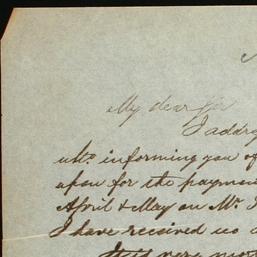 My dear Sir
I addre
ulto informing you of
upon for the paymen
April & May on Mr.
I have received no